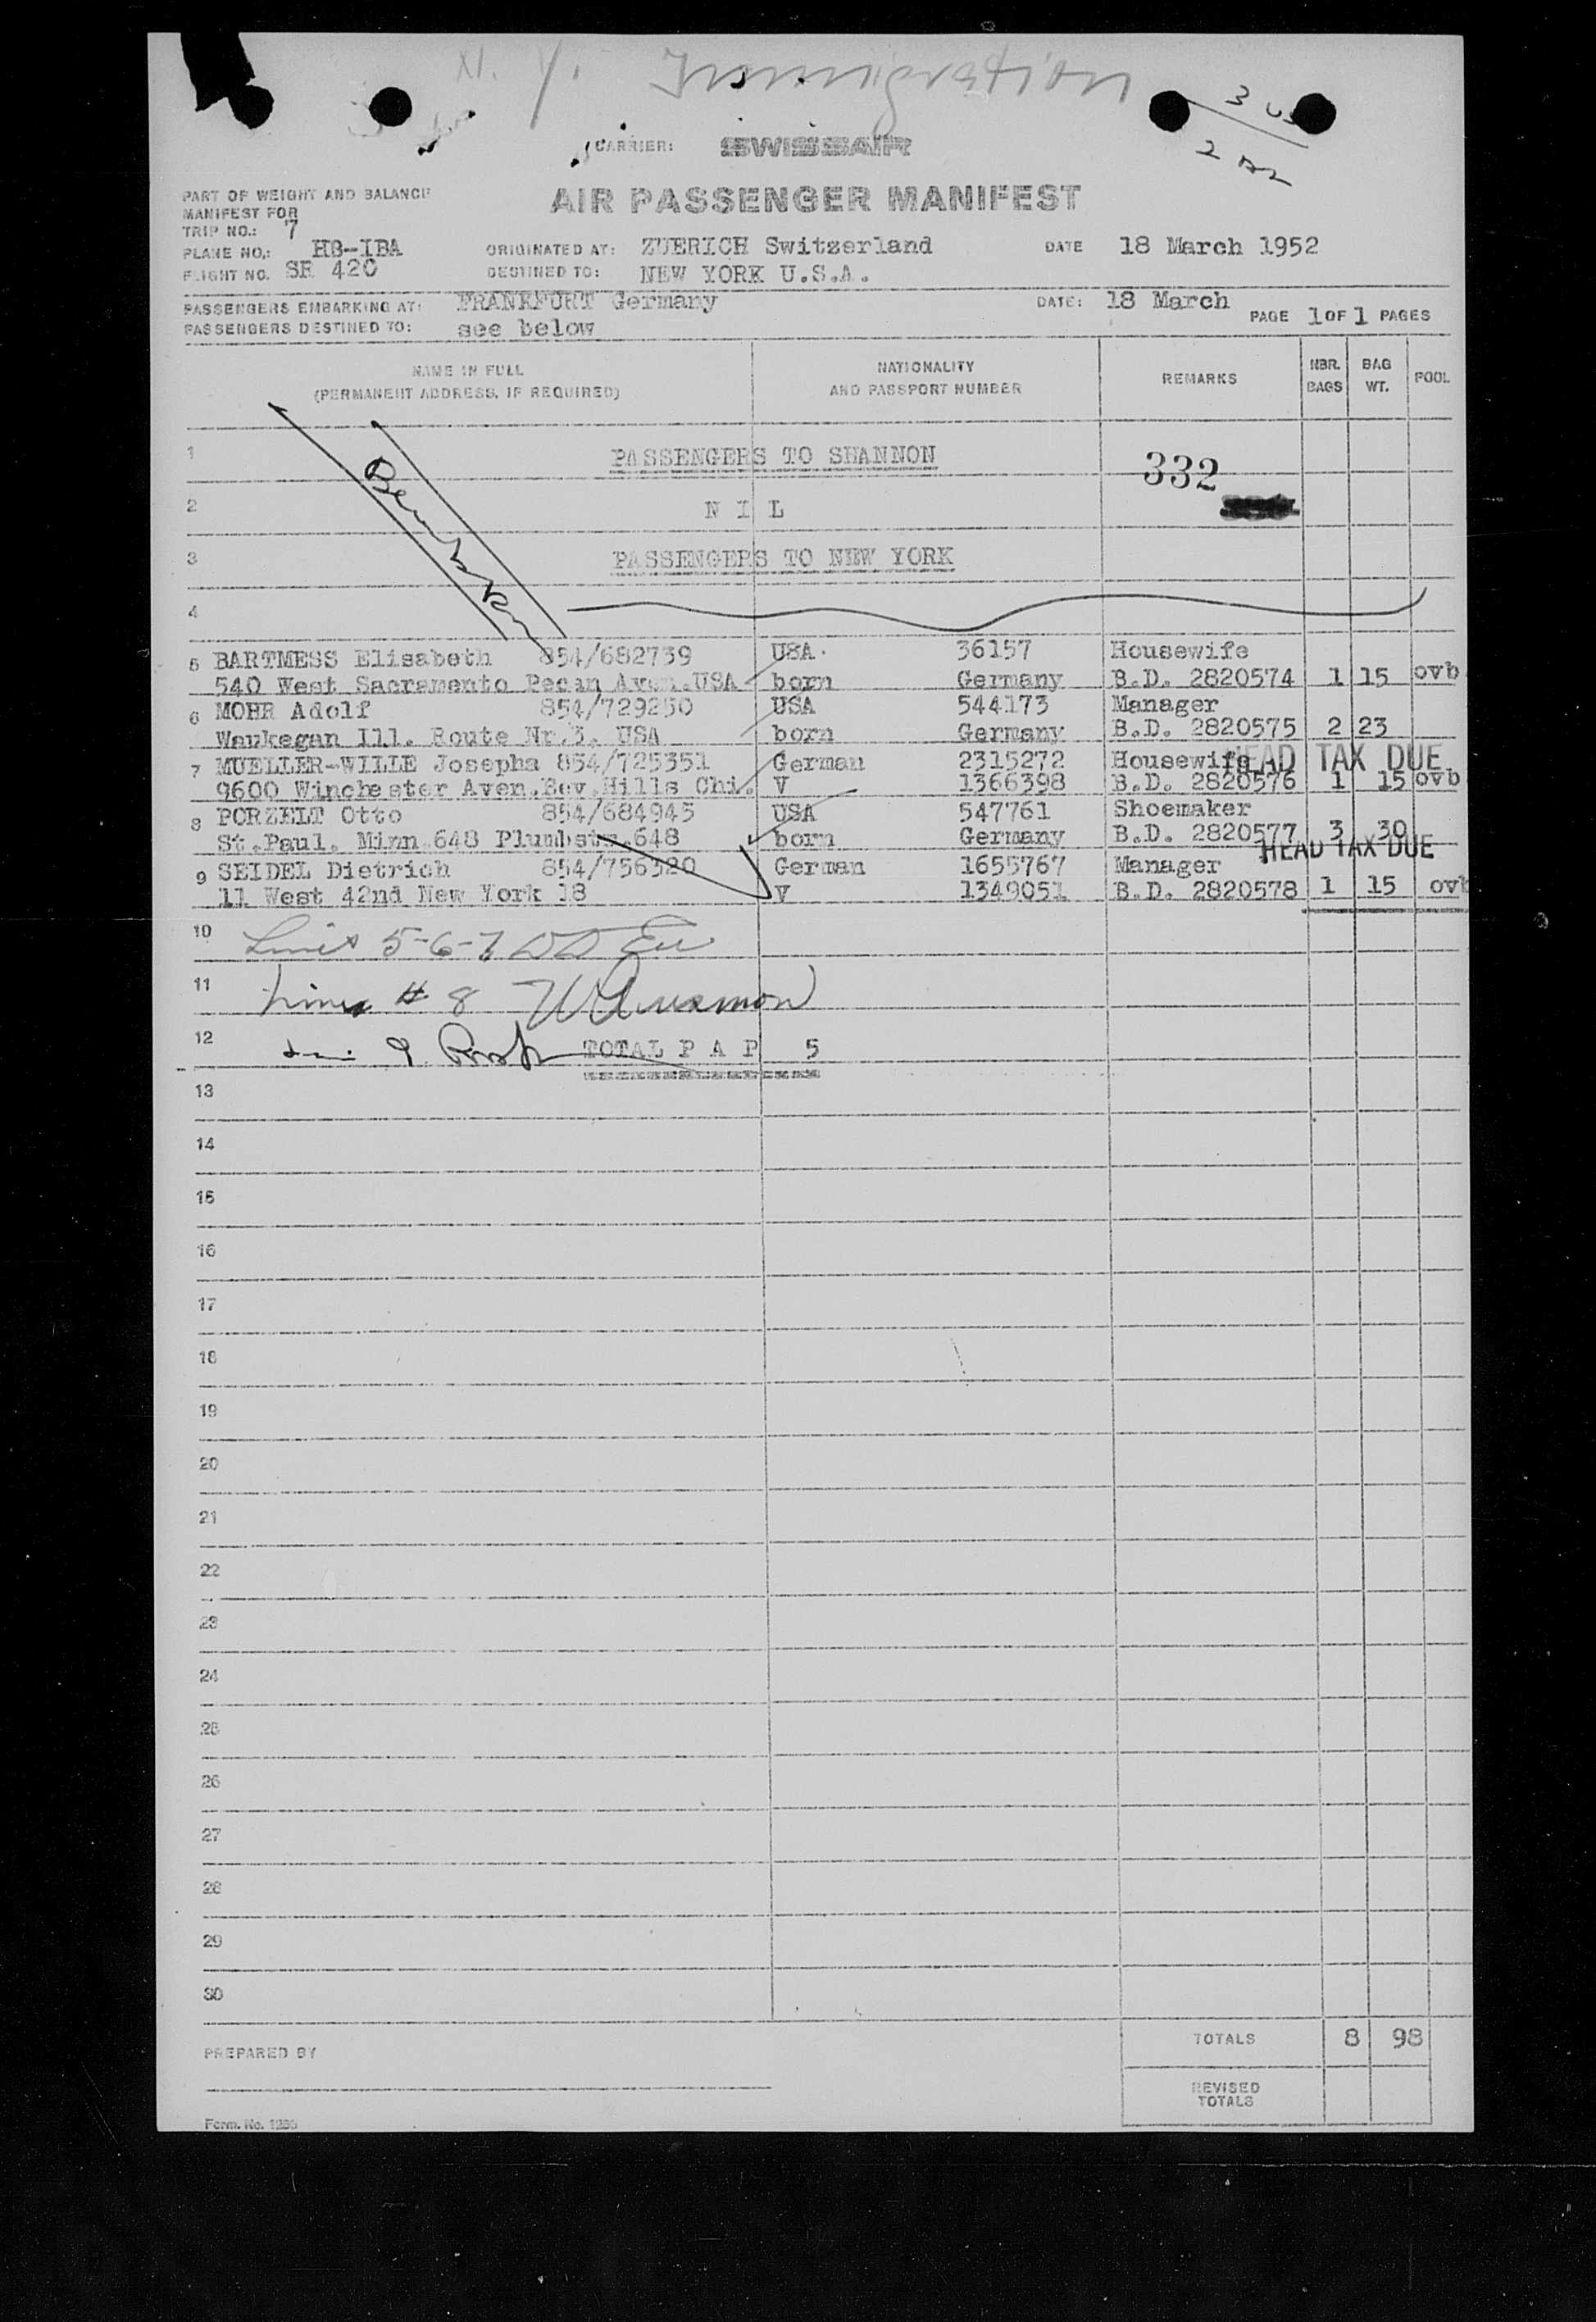 N. Y. Immigration
3 US
2 
CARRIER: SWISSAIR
PART OF WEIGHT AND BALANCE
MANIFEST FOR
AIR PASSENGER MANIFEST
TRIP NO.: 7
PLANE NO.: HB-IBA ORIGINATED AT: ZUERICH Switzerland DATE 18 March 1952
FLIGHT NO. SR 420 DESTINED TO: NEW YORK U.S.A.
PASSENGERS EMBARKING AT: FRANKFURT Germany DATE: 18 March
PASSENGERS DESTINED TO: see below PAGE 1 OF 1 PAGES
NAME IN FULL NATIONALITY REMARKS NBR. BAG POOL
(PERMANENT ADDRESS, IF REQUIRED) AND PASSPORT NUMBER BAGS WT.
1 PASSENGERS TO SHANNON 332
2 N I L
3 PASSENGERS TO NEW YORK
4
5 BARTMESS Elisabeth 854/682739 USA 36157 Housewife
540 West Sacramento Pecan Aven.USA born Germany B.D. 2820574 1 15 ovb
6 MOHR Adolf 854/729250 USA 544173 Manager
Waukegan Ill. Route Nr.3. USA born Germany B.D. 2820575 2 23
7 MUELLER-WILLE Josepha 854/725351 German 2315272 Housewife HEAD TAX DUE
9600 Winchester Aven.Bev.Hills Chi. V 1366398 B.D. 2820576 1 15 ovb
8 PORZELT Otto 854/684945 USA 547761 Shoemaker
St.Paul. Minn 648 Plumbstr.648 born Germany B.D. 2820577 3 30
HEAD TAX DUE
9 SEIDEL Dietrich 854/756320 German 1655767 Manager
11 West 42nd New York 18 V 1349051 B.D. 2820578 1 15 ovb
10 5-6-7
11 Lines # 8
12 9 TOTAL P A P 5
13
14
15
16
17
18
19
20
21
22
23
24
25
26
27
28
29
30
PREPARED BY TOTALS 8 98
REVISED
TOTALS
Form. No.